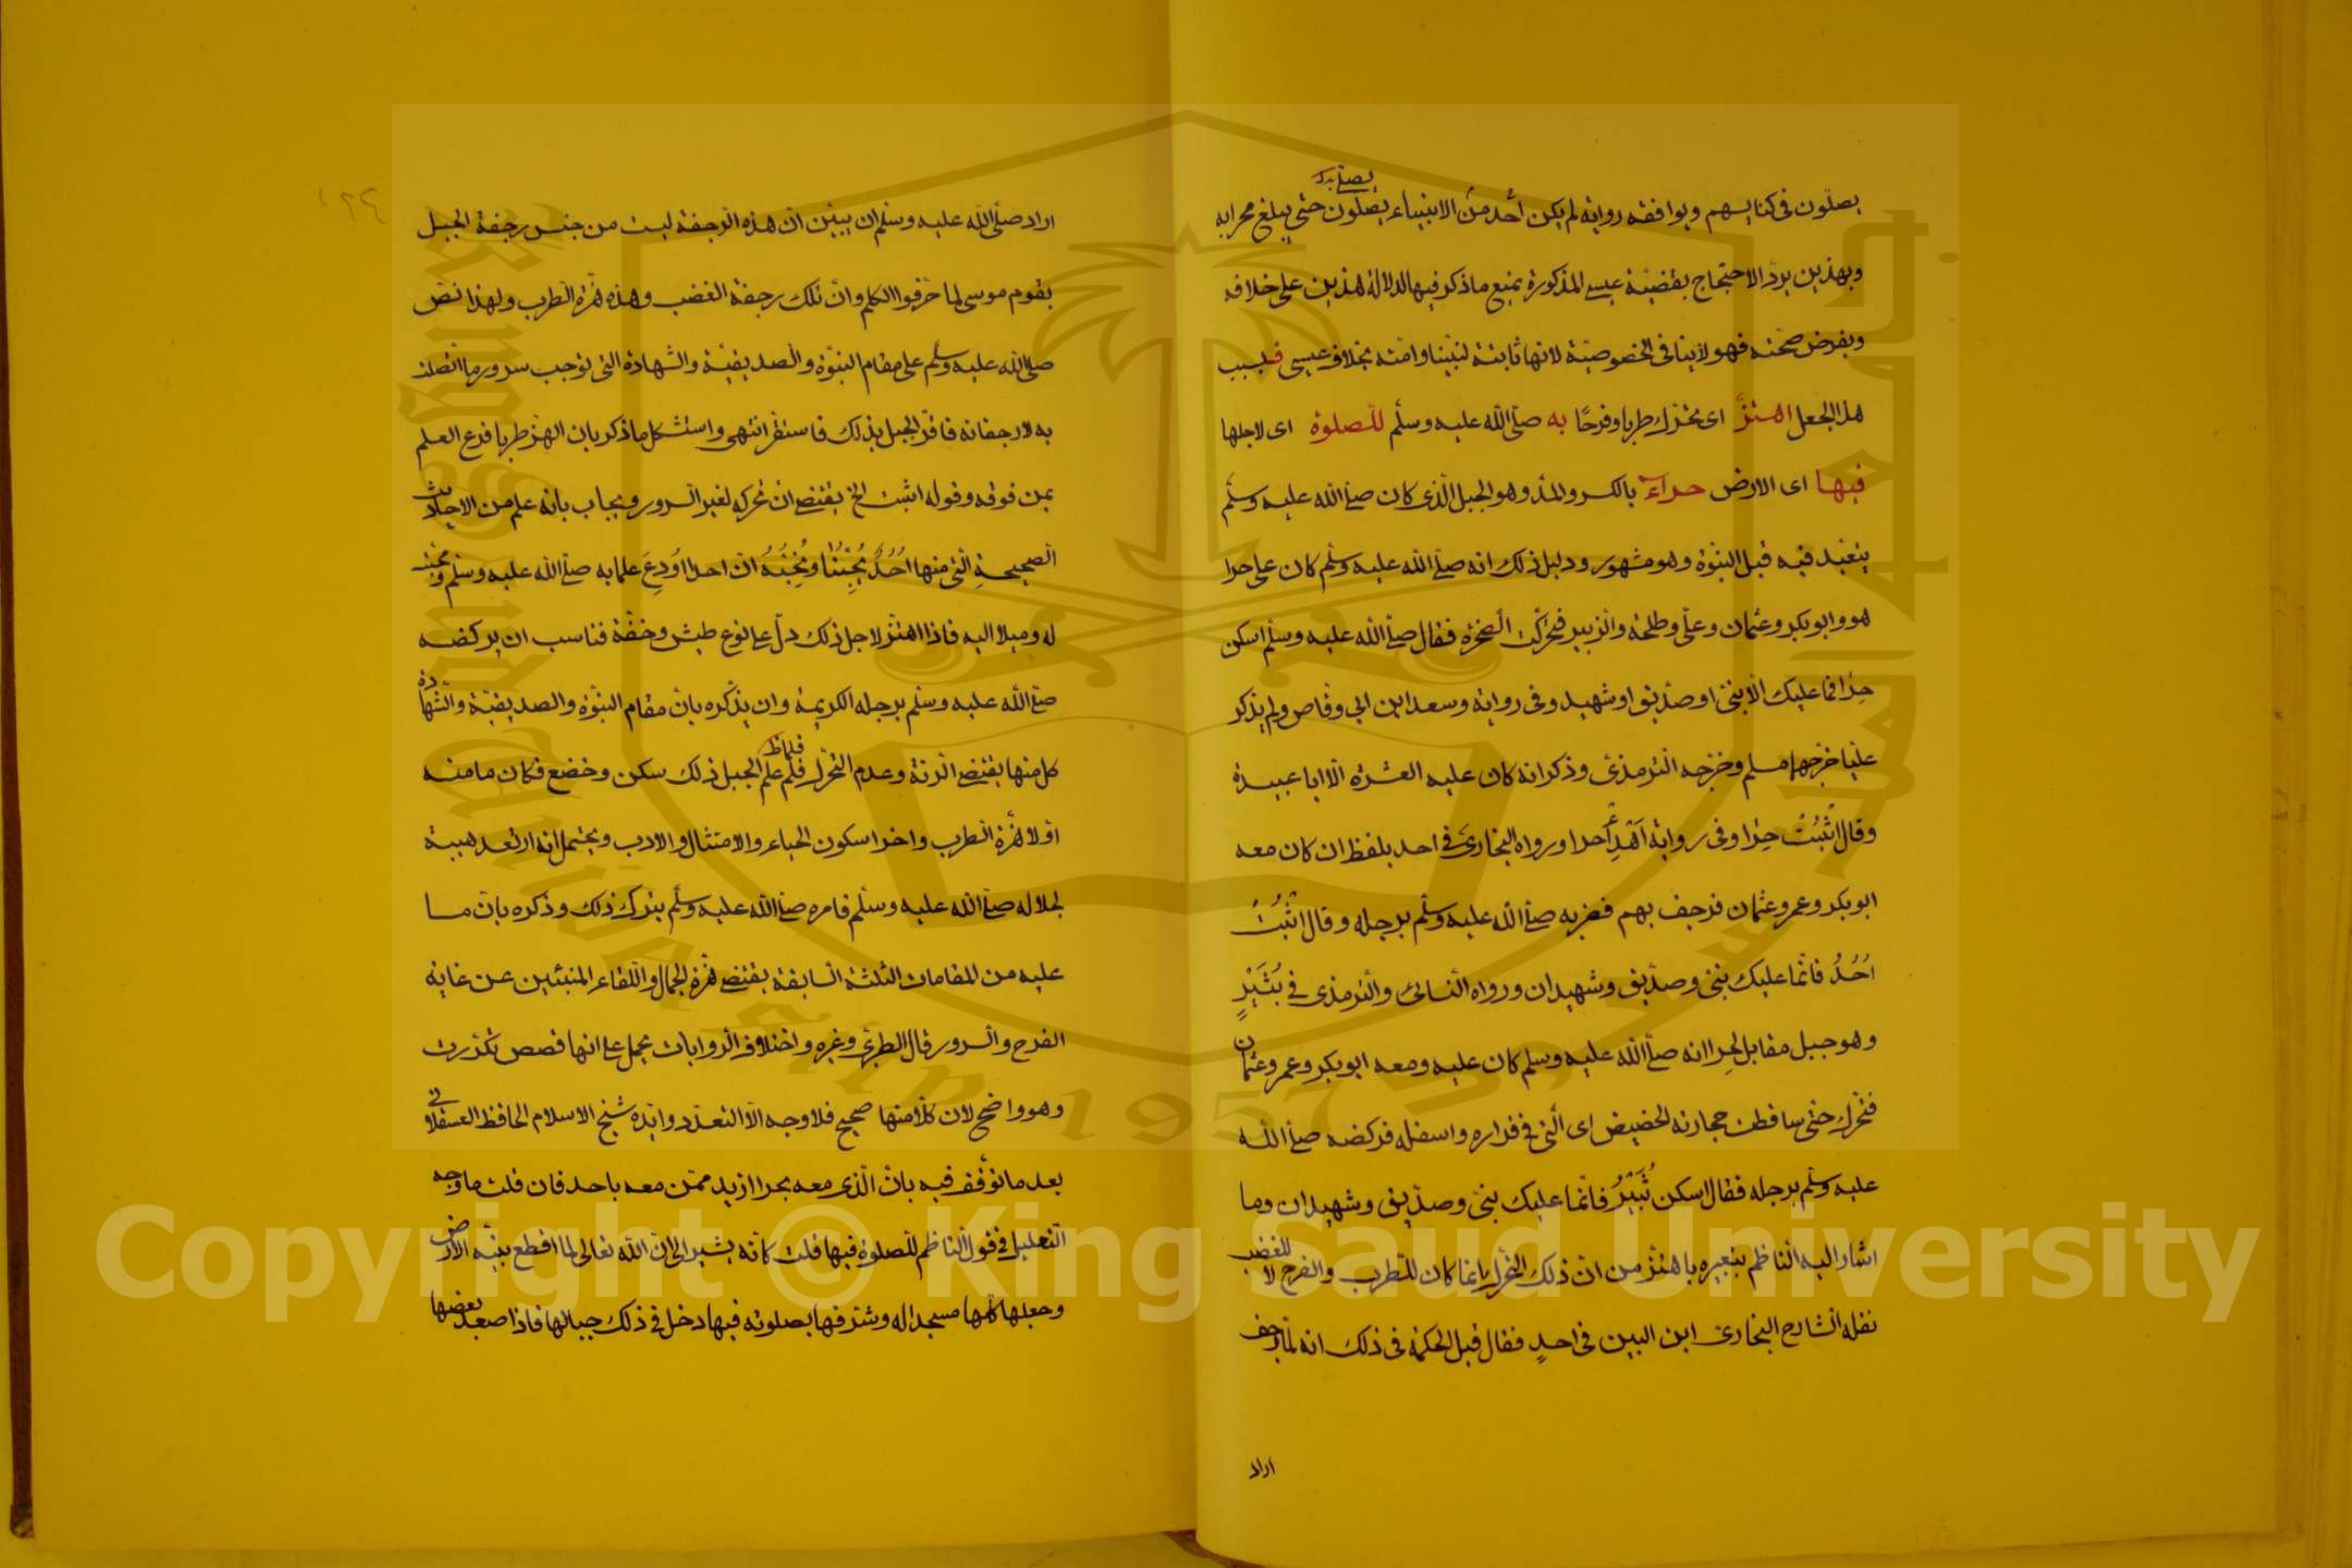 يصلون فى كنايسهم ويوافقه رواية لم يكن أحد من الانبياء يصلون حتى يبلغ محرابه
يصلى بدل
وبهذين يردّ الاحتجاج بقضيّة عيسى المذكورة بمنع ما ذكر فيها لدلالة هذين على خلافه
وبفرض صحته فهو لا ينافى الخصوصيّة لانها ثابتة لنبيّنا وامته بخلاف عيسى فبسبب
هذا الجعل اهتزّ اى تحرّك طربا وفرحًا به صلّى الله عليه وسلّم للصلوة اى لاجلها
فيها اى الارض حراء بالكسر والمد وهو الجبل الّذى كان صلى الله عليه وسلّم
يتعبد فيه قبل النبوّة وهو مشهور ودليل ذلك انه صلى الله عليه وسلّم كان على حرا
هو وابو بكر وعثمان وعلىّ وطلحة والزبير فتحرّكت الصخرة فقال صلى الله عليه وسلم اسكن
حرا فما عليك الّا نبىّ او صدّيق او شهيد وفى رواية وسعد ابن ابى وقّاص ولم يذكر
عليّا خرّجهما مسلم وخرّجه الترمذى وذكر انه كان عليه العشرة الّا ابا عبيدة
وقال اثبت حرا وفى رواية اهدأ حرا ورواه البخارى فى احد بلفظ ان كان معه
ابو بكر وعمر وعثمان فرجف بهم فضربه صلى الله عليه وسلّم برجله وقال اثبت
اُحُدُ فانّما عليك نبىّ وصدّيق وشهيدان ورواه النسائى والترمذى فى ثبير
وهو جبل مقابل لحرا انه صلى الله عليه وسلم كان عليه ومعه ابو بكر وعمر وعثمان
فتحرك حتى تساقطت حجارته الحضيض اى الّتى فى قراره واسفله فركضه صلى الله
عليه وسلّم برجله فقال اسكن ثبير فانّما عليك نبىّ وصدّيق وشهيدان وما
اشار اليه الناظم بتعبيره باهتزّ من انّ ذلك التحرّك انما كان للطرب والفرح لا للغضب
نقله الشارح البخارى ابن التين فى احد فقال قيل الحكمة فى ذلك انه لمّا رجف
اراد
اراد صلى الله عليه وسلم ان يبيّن انّ هذه الرجفة ليست من جنس رجفة الجبل
بقوم موسى لما حرّفوا الكلم وانّ تلك رجفة الغضب وهذه هزّة الطرب ولهذا نصّ
صلى الله عليه وسلم على مقام النبوّة والصديقيّة والشهادة التى توجب سرور ما اتّصلت
به لا رجفانه فاقرّ الجبل بذلك فاستقرّ انتهى واستشكل ما ذكر بان الهزّ طربا فرع العلم
بمن فوقه وقوله اثبت الخ يقتضى ان تحركه لغير السرور ويجاب بانه علم من الاحاديث
الصحيحة الّتى منها اُحُدٌ يُحِبُّنَا ونُحِبُّهُ انّ احدا اُودِعَ علما به صلى الله عليه وسلم ومحبّته
له وميلا اليه فاذا اهتزّ لاجل ذلك دلّ على نوع طيش وخفّة فناسب ان يركضه
صلى الله عليه وسلم برجله الكريمة وان يذكّره بانّ مقام النبوّة والصديقيّة والشهادة
كل منها يقتضى الرزنة وعدم التحرّك فلم علم الجبل ذلك سكن وخضع فكان ما منه
فلما ظ
اوّلا هزّة الطرب واخرا سكون الحياء والامتثال والادب ويحتمل انه ارتعد هيبة
لجلاله صلى الله عليه وسلّم فامره صلى الله عليه وسلّم بترك ذلك وذكره بانّ ما
عليه من المقامات الثلثة السابقة يقتضى هزّة الجمال واللقاء المنبئين عن غاية
الفرح والسرور قال الطبرى وغيره واختلاف الروايات يحمل على انها قصص تكرّرت
وهو واضح لان كلّا منها صحيح فلا وجه الّا التعدّد وايّده شيخ الاسلام الحافظ العسقلانى
بعد ما توقّف فيه بانّ الّذى معه بحرا ازيد ممّن معه باحد فان قلت ما وجه
التعليل فى قول الناظم للصلوة فيها قلت كانّه يشير الى انّ الله تعالى لما اقطع نبيّه الارض
وجعلها كلّها مسجدا له وشرّفها بصلوته فيها دخل فى ذلك جبالها فاذا صعد بعضها
King Saud University
1957
Copyright © King Saud University